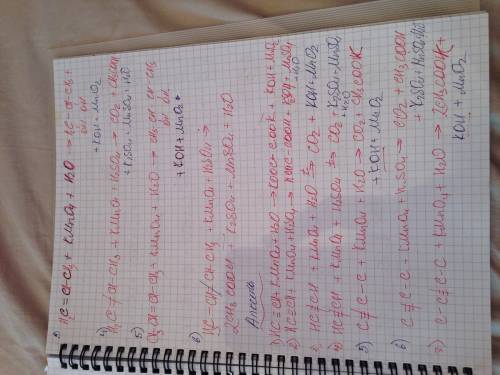 3) H₂C=CH-CH₃ + KMnO₄ + H₂O → H₂C-CH-CH₃ +
OH OH
+ KOH + MnO₂
4) H₂C≠CH-CH₃ + KMnO₄ + H₂SO₄ → CO₂ + CH₃COOH
+ K₂SO₄ + MnSO₄ + H₂O
5) CH₃-CH=CH-CH₃ + KMnO₄ + H₂O → CH₃-CH-CH-CH₃
OH OH
+ KOH + MnO₂ +
6)
2CH₃COOH + K₂SO₄ + MnSO₄ + H₂O
1) HC≡CH + KMnO₄ + H₂O → KOOC-COOK + KOH + MnO₂
2) HC≡CH + KMnO₄ + H₂SO₄ → HOOC-COOH + K₂SO₄ + MnSO₄
+ H₂O
3) HC≢CH + KMnO₄ + H₂O → CO₂ + KOH + MnO₂
4) HC≢CH + KMnO₄ + H₂SO₄ → CO₂ + K₂SO₄ + MnSO₄
+ H₂O
5) C≢C-C + KMnO₄ + H₂O → CO₂ + CH₃COOK
+ KOH + MnO₂
6) C≢C-C + KMnO₄ + H₂SO₄ → CO₂ + CH₃COOH
+ K₂SO₄ + MnSO₄ + H₂O
7) C-C≢C-C + KMnO₄ + H₂O → 2CH₃COOK +
KOH + MnO₂